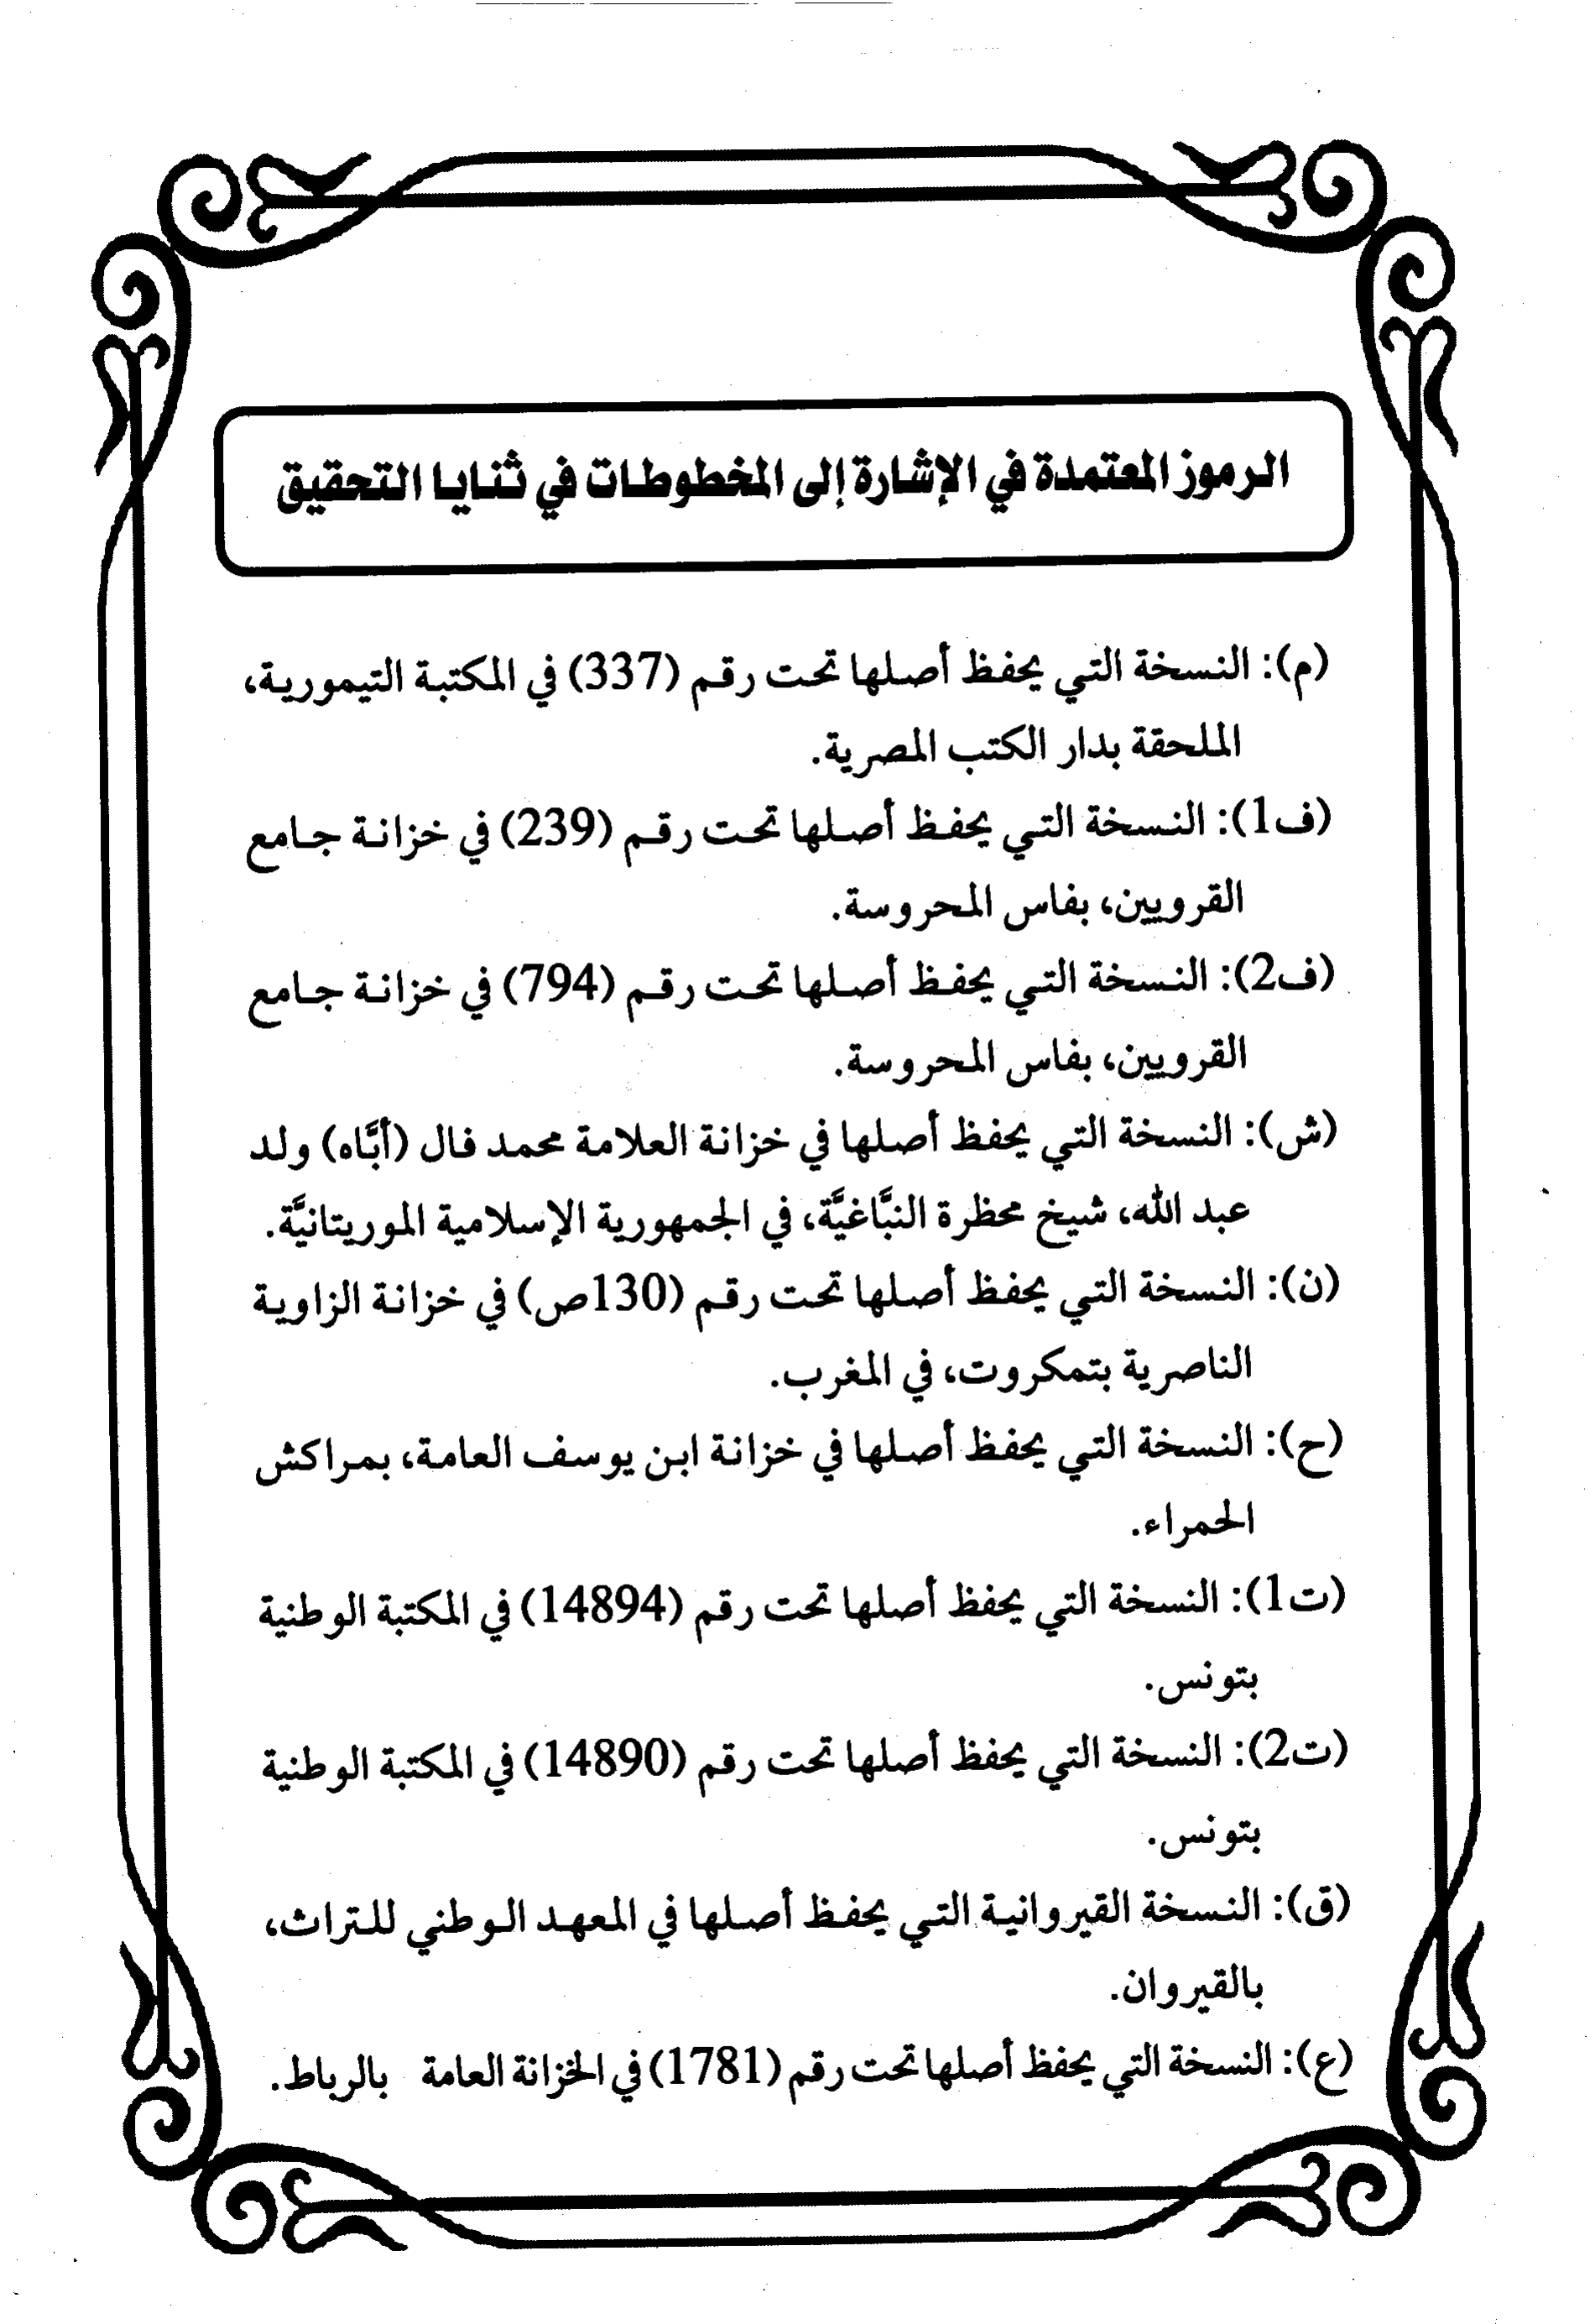 الرموز المعتمدة في الإشارة إلى المخطوطات في ثنايا التحقيق
(م): النسخة التي يحفظ أصلها تحت رقم (337) في المكتبة التيمورية،
الملحقة بدار الكتب المصرية.
(ف1): النسخة التي يحفظ أصلها تحت رقم (239) في خزانة جامع
القرويين، بفاس المحروسة.
(ف2): النسخة التي يحفظ أصلها تحت رقم (794) في خزانة جامع
القرويين، بفاس المحروسة.
(ش): النسخة التي يحفظ أصلها في خزانة العلامة محمد فال (أبَّاه) ولد
عبد الله، شيخ محظرة النبَّاغيَّة، في الجمهورية الإسلامية الموريتانيَّة.
(ن): النسخة التي يحفظ أصلها تحت رقم (130ص) في خزانة الزاوية
الناصرية بتمكروت، في المغرب.
(ح): النسخة التي يحفظ أصلها في خزانة ابن يوسف العامة، بمراكش
الحمراء.
(ت1): النسخة التي يحفظ أصلها تحت رقم (14894) في المكتبة الوطنية
بتونس.
(ت2): النسخة التي يحفظ أصلها تحت رقم (14890) في المكتبة الوطنية
بتونس.
(ق): النسخة القيروانية التي يحفظ أصلها في المعهد الوطني للتراث،
بالقيروان.
(ع): النسخة التي يحفظ أصلها تحت رقم (1781) في الخزانة العامة بالرباط.